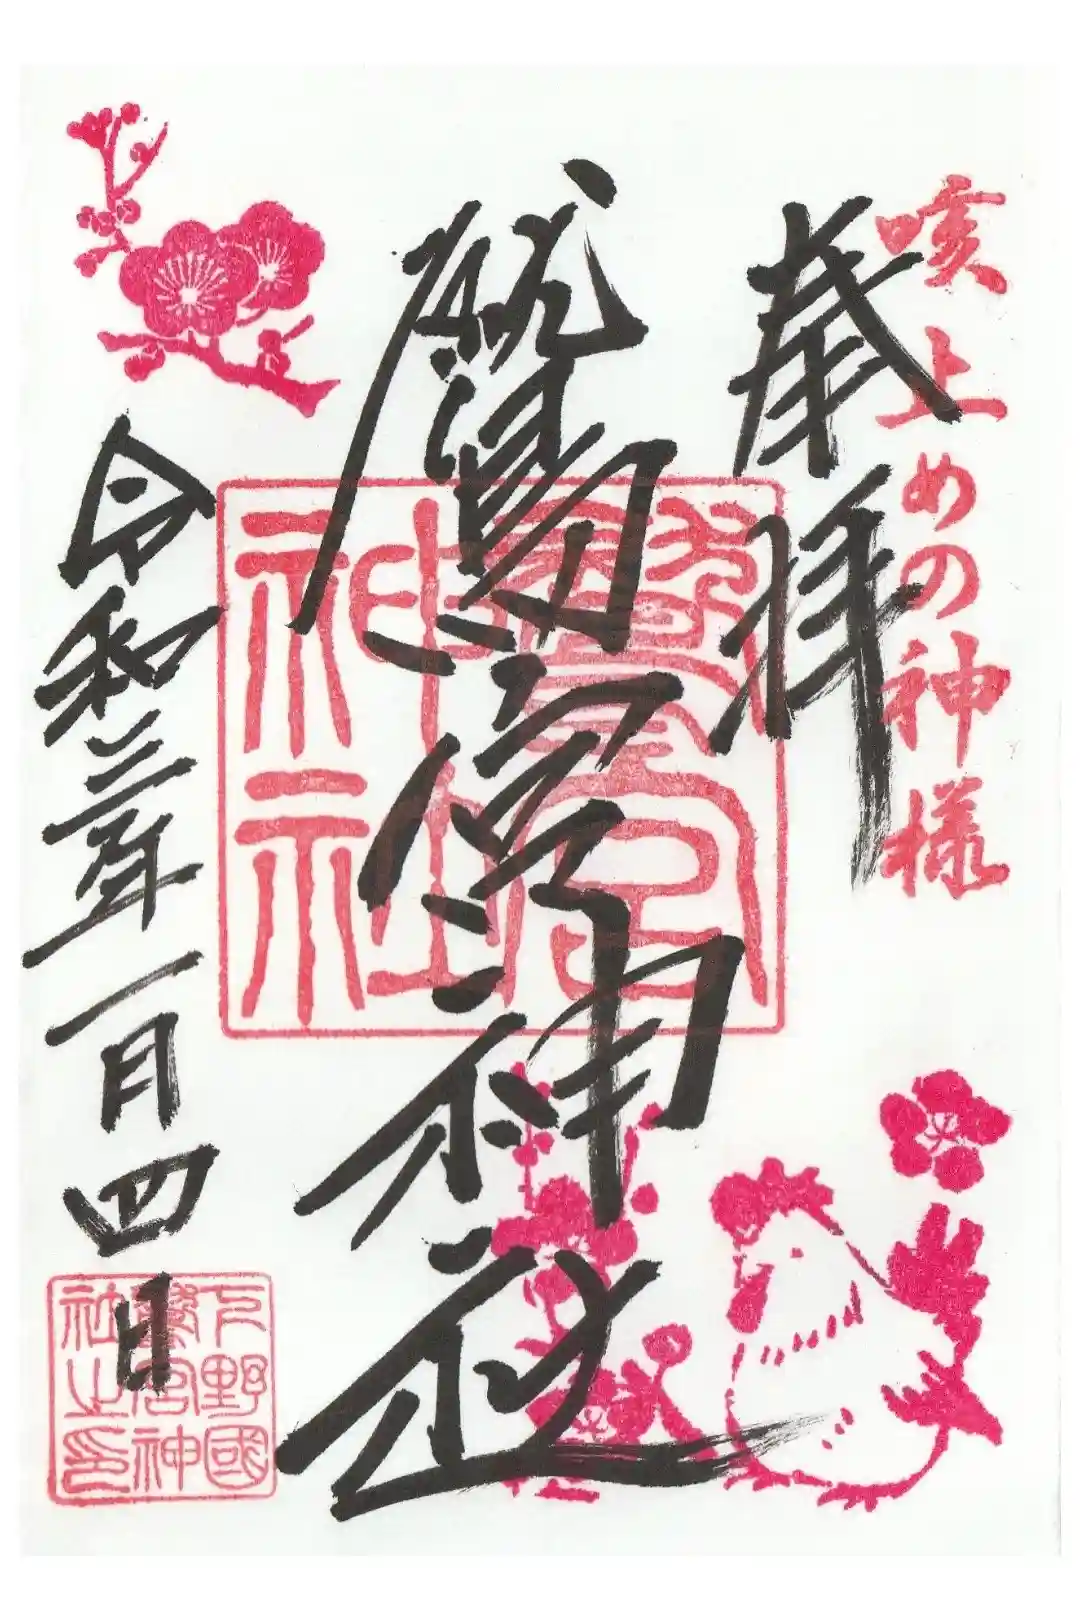 咳止めの神様
奉拝
鷲宮神社
鷲宮神社
令和三年一月四日
下野國
鷲宮神
社之印